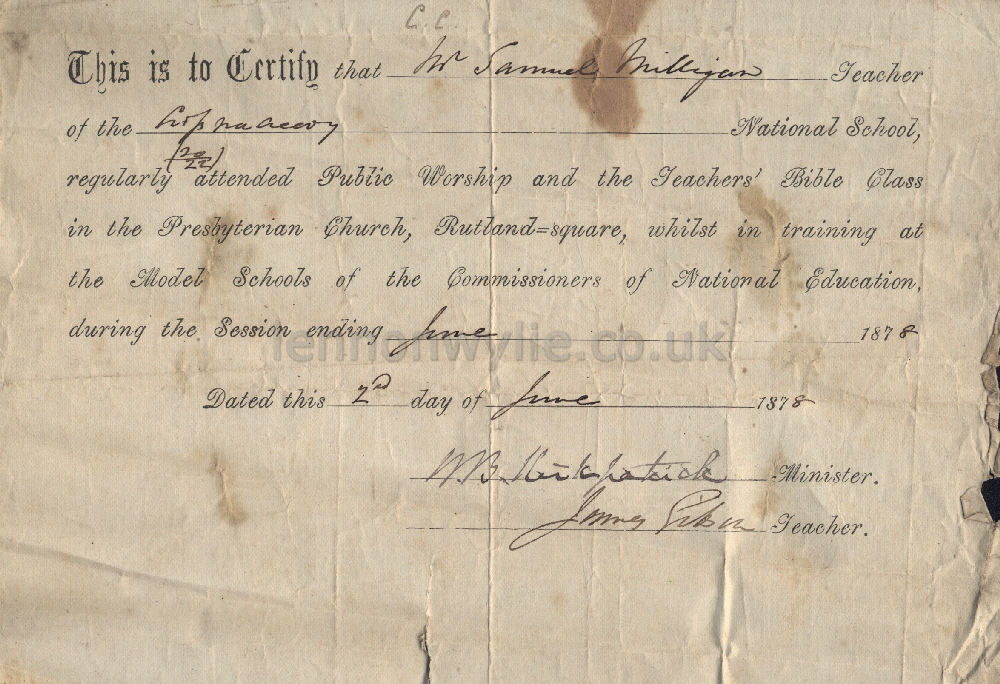 C. C.
This is to Certify that Mr Samuel Milligan Teacher
of the National School,
(20/22)
regularly attended Public Worship and the Teachers' Bible Class
in the Presbyterian Church, Rutland=square, whilst in training at
the Model Schools of the Commissioners of National Education,
during the Session ending June 1878
lennonwylie.co.uk
Dated this 2nd day of June 1878
W.B. Kirkpatrick Minister.
James Gibson Teacher.